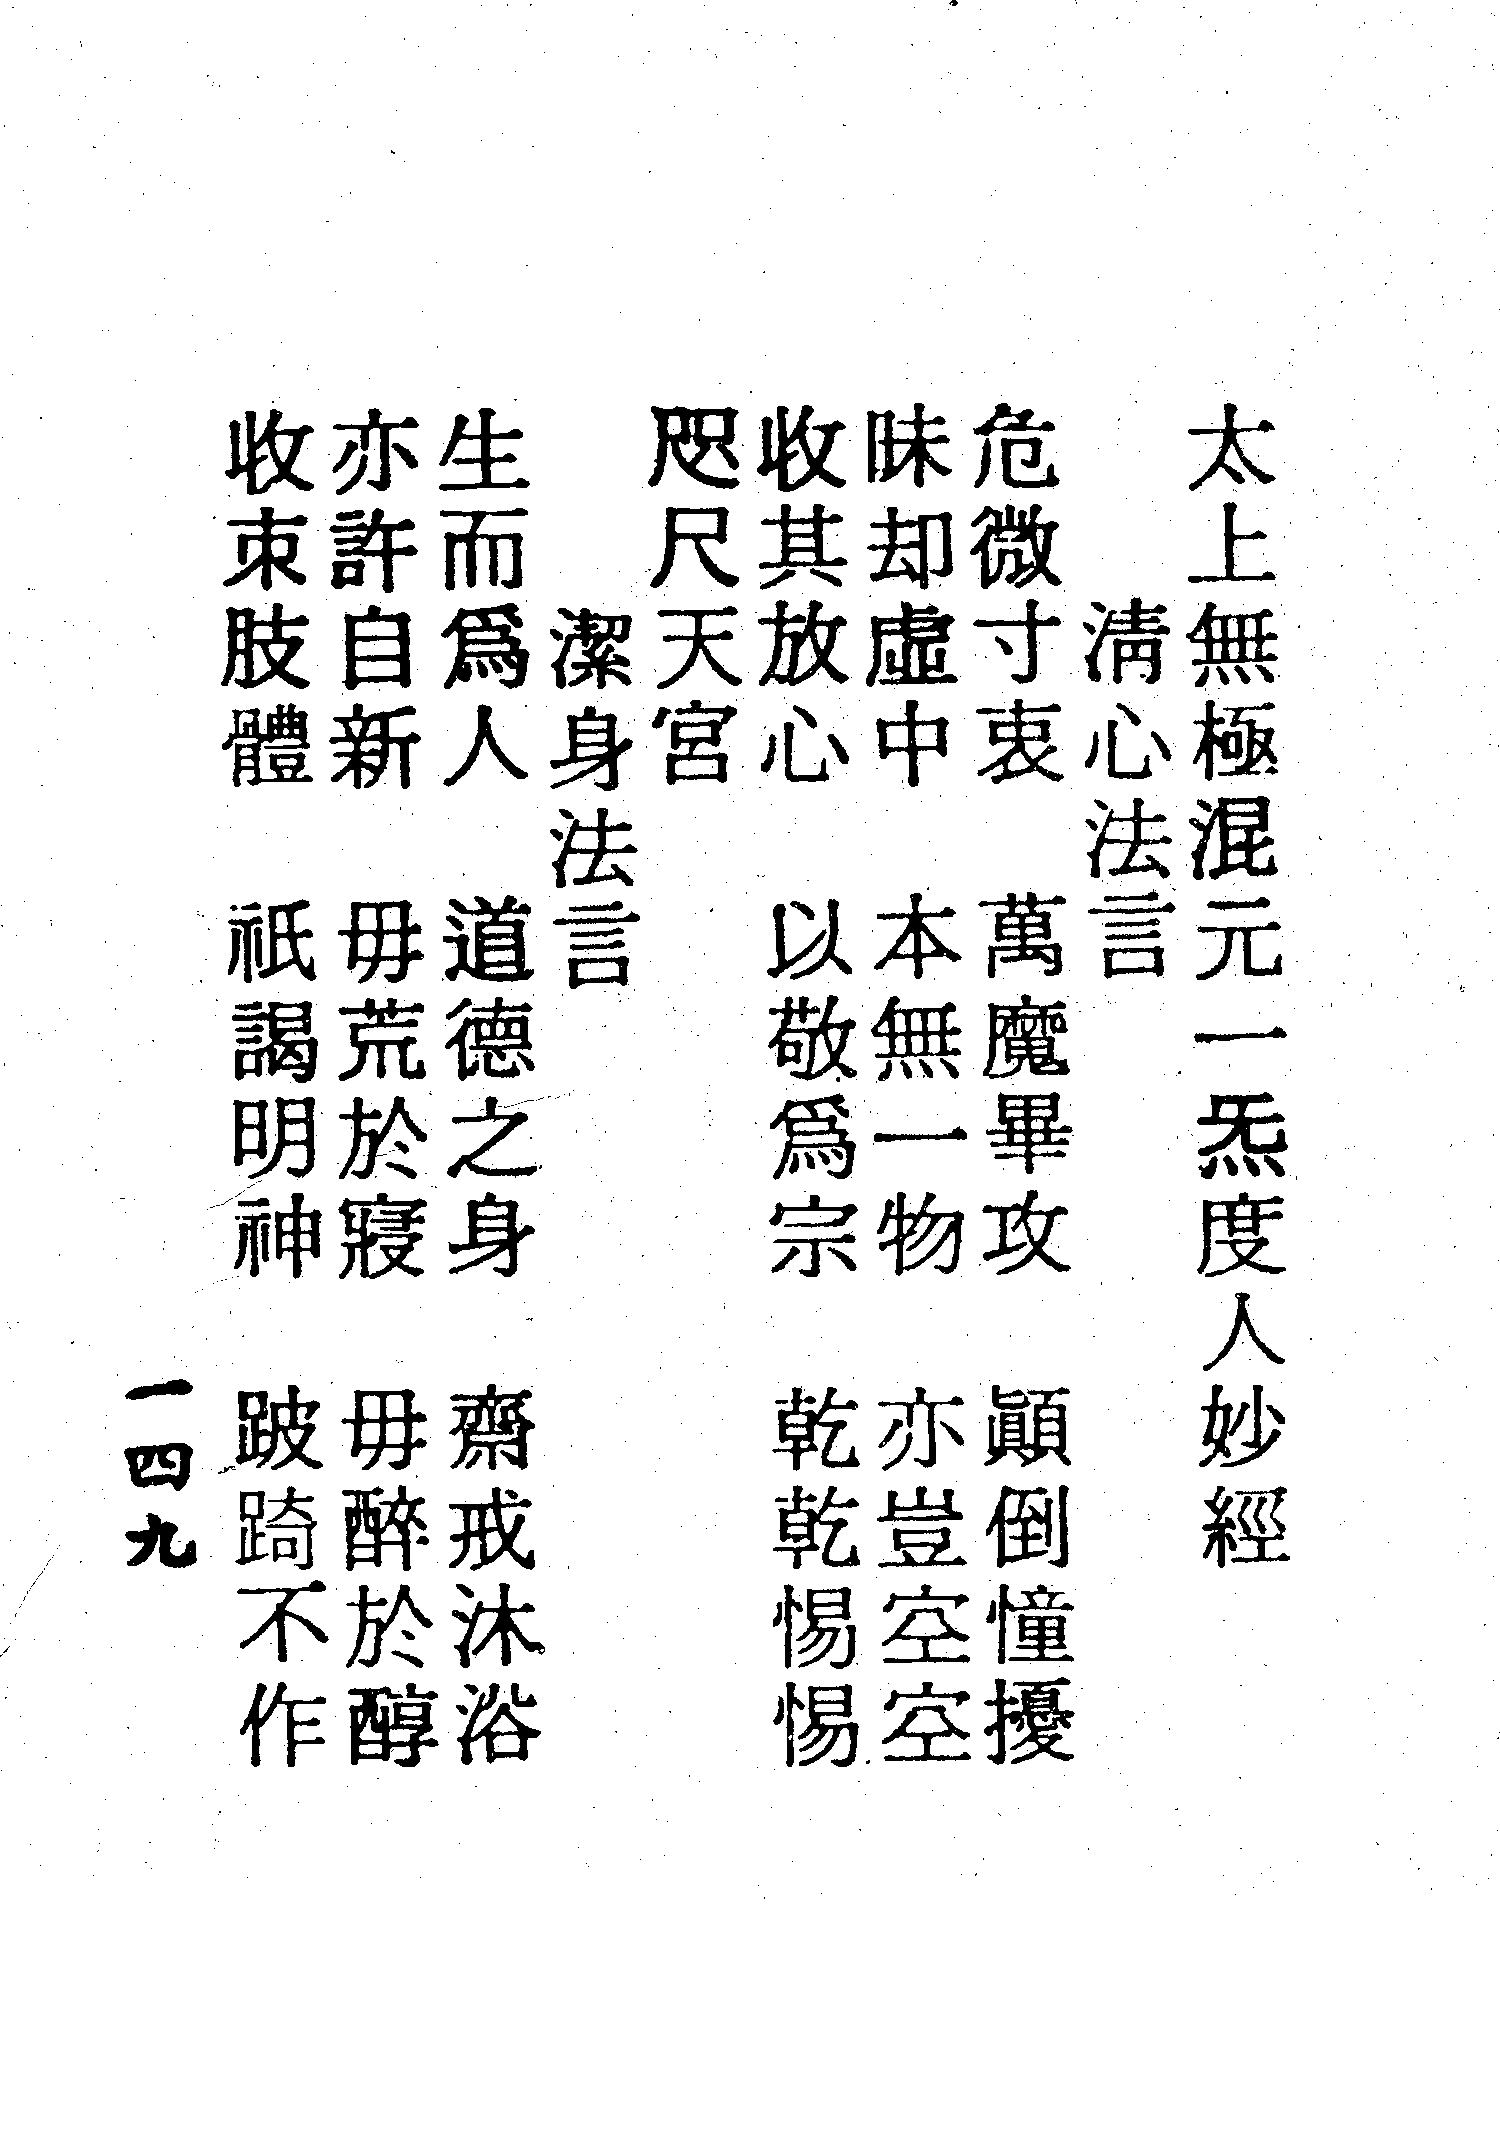 太上無極混元一炁度人妙經
清心法言
危微寸衷　萬魔畢攻　顚倒憧擾
昧却虛中　本無一物　亦豈空空
收其放心　以敬爲宗　乾乾惕惕
咫尺天宮
潔身法言
生而爲人　道德之身　齋戒沐浴
亦許自新　毋荒於寢　毋醉於醇
收束肢體　祇謁明神　跛踦不作
一四九